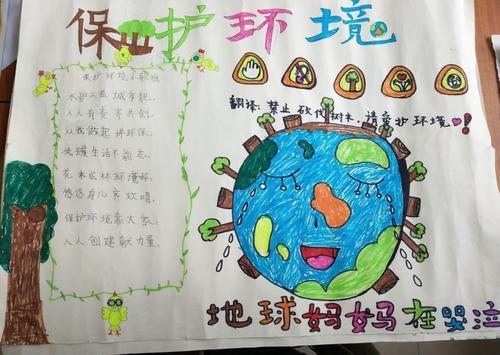 保护环境
保护环境小歌谣
城市靓,
人人有责齐共创。
从我做起讲环保,
低碳生活不能忘。
成林环境好,
悠悠鸟儿齐欢唱。
保护环境靠大家,
人人创建献力量。
翻译:禁止砍伐树木,请爱护环境!
地球妈妈在哭泣